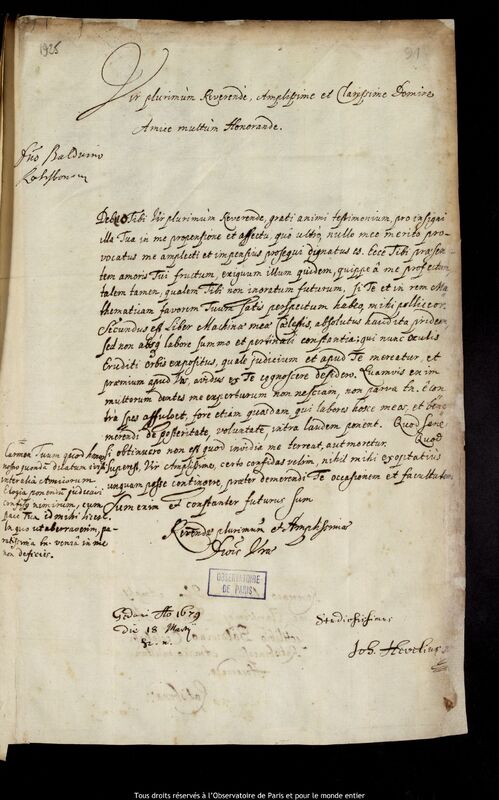 1925
91
Vir plurimùm Reverende, Amplissime et Clarissime Domine
Amice multùm Honorande.
Dno Balduino
Ratisbonam
Debeo Tibi Vir plurimùm Reverende, grati animi testimonium, pro insigni
illa Tua in me propensione et affectu, quo ultrò, nullo meo merito pro-
vocatus me amplecti et impensius prosequi dignatus es. Ecce Tibi præsen-
tem amoris Tui fructum, exiguum illum quidem, quippe à me profectum,
talem tamen, qualem Tibi non ingratum futurum, si Te et in rem Ma-
thematicam favorem Tuum satis perspectum habeo, mihi polliceor.
Secundus est Liber Machinæ meæ Cœlestis, absolutus haud ita pridem,
sed non absq labore summo et perennali constantia: qui nunc oculis
Eruditi orbis expositus, quale judicium et apud Te mereatur, et
præmium apud Vos, avidus ex Te cognoscere desidero. Quamvis enim
multorum dentes me experturum non nesciam, non parva tn. è con-
tra spes affulget, fore etiam quosdam, qui labores hosce meos, et bene
merendi de posteritate, voluntatem intra laudem ponent. Quod sane
Quod
si obtinuero non est quod invidiæ me terreat, aut moretur
supersit. Vir Amplissime, certò confidas velim, nihil mihi exoptatius
unquam posse contingere, præter demerendi Te occasionem et facultatem.
Sum enim et constanter futurus sum
Carmen Tuum quod honori
nostro quondam dicatum inter
Elogia ponendum judicavi
confisus nimirum, eum
pace Tua id mihi licere.
In quo ut aberraverim,
non deficies.
Reverendæ plurimum et Amplissimæ
Divis Vræ
OBSERVATOIRE
DE PARIS
Gedani Ao 1679
die 18 Martij
st. n.
Studiosissimus
Joh. Hevelius
Tous droits réservés à l'Observatoire de Paris et pour le monde entier